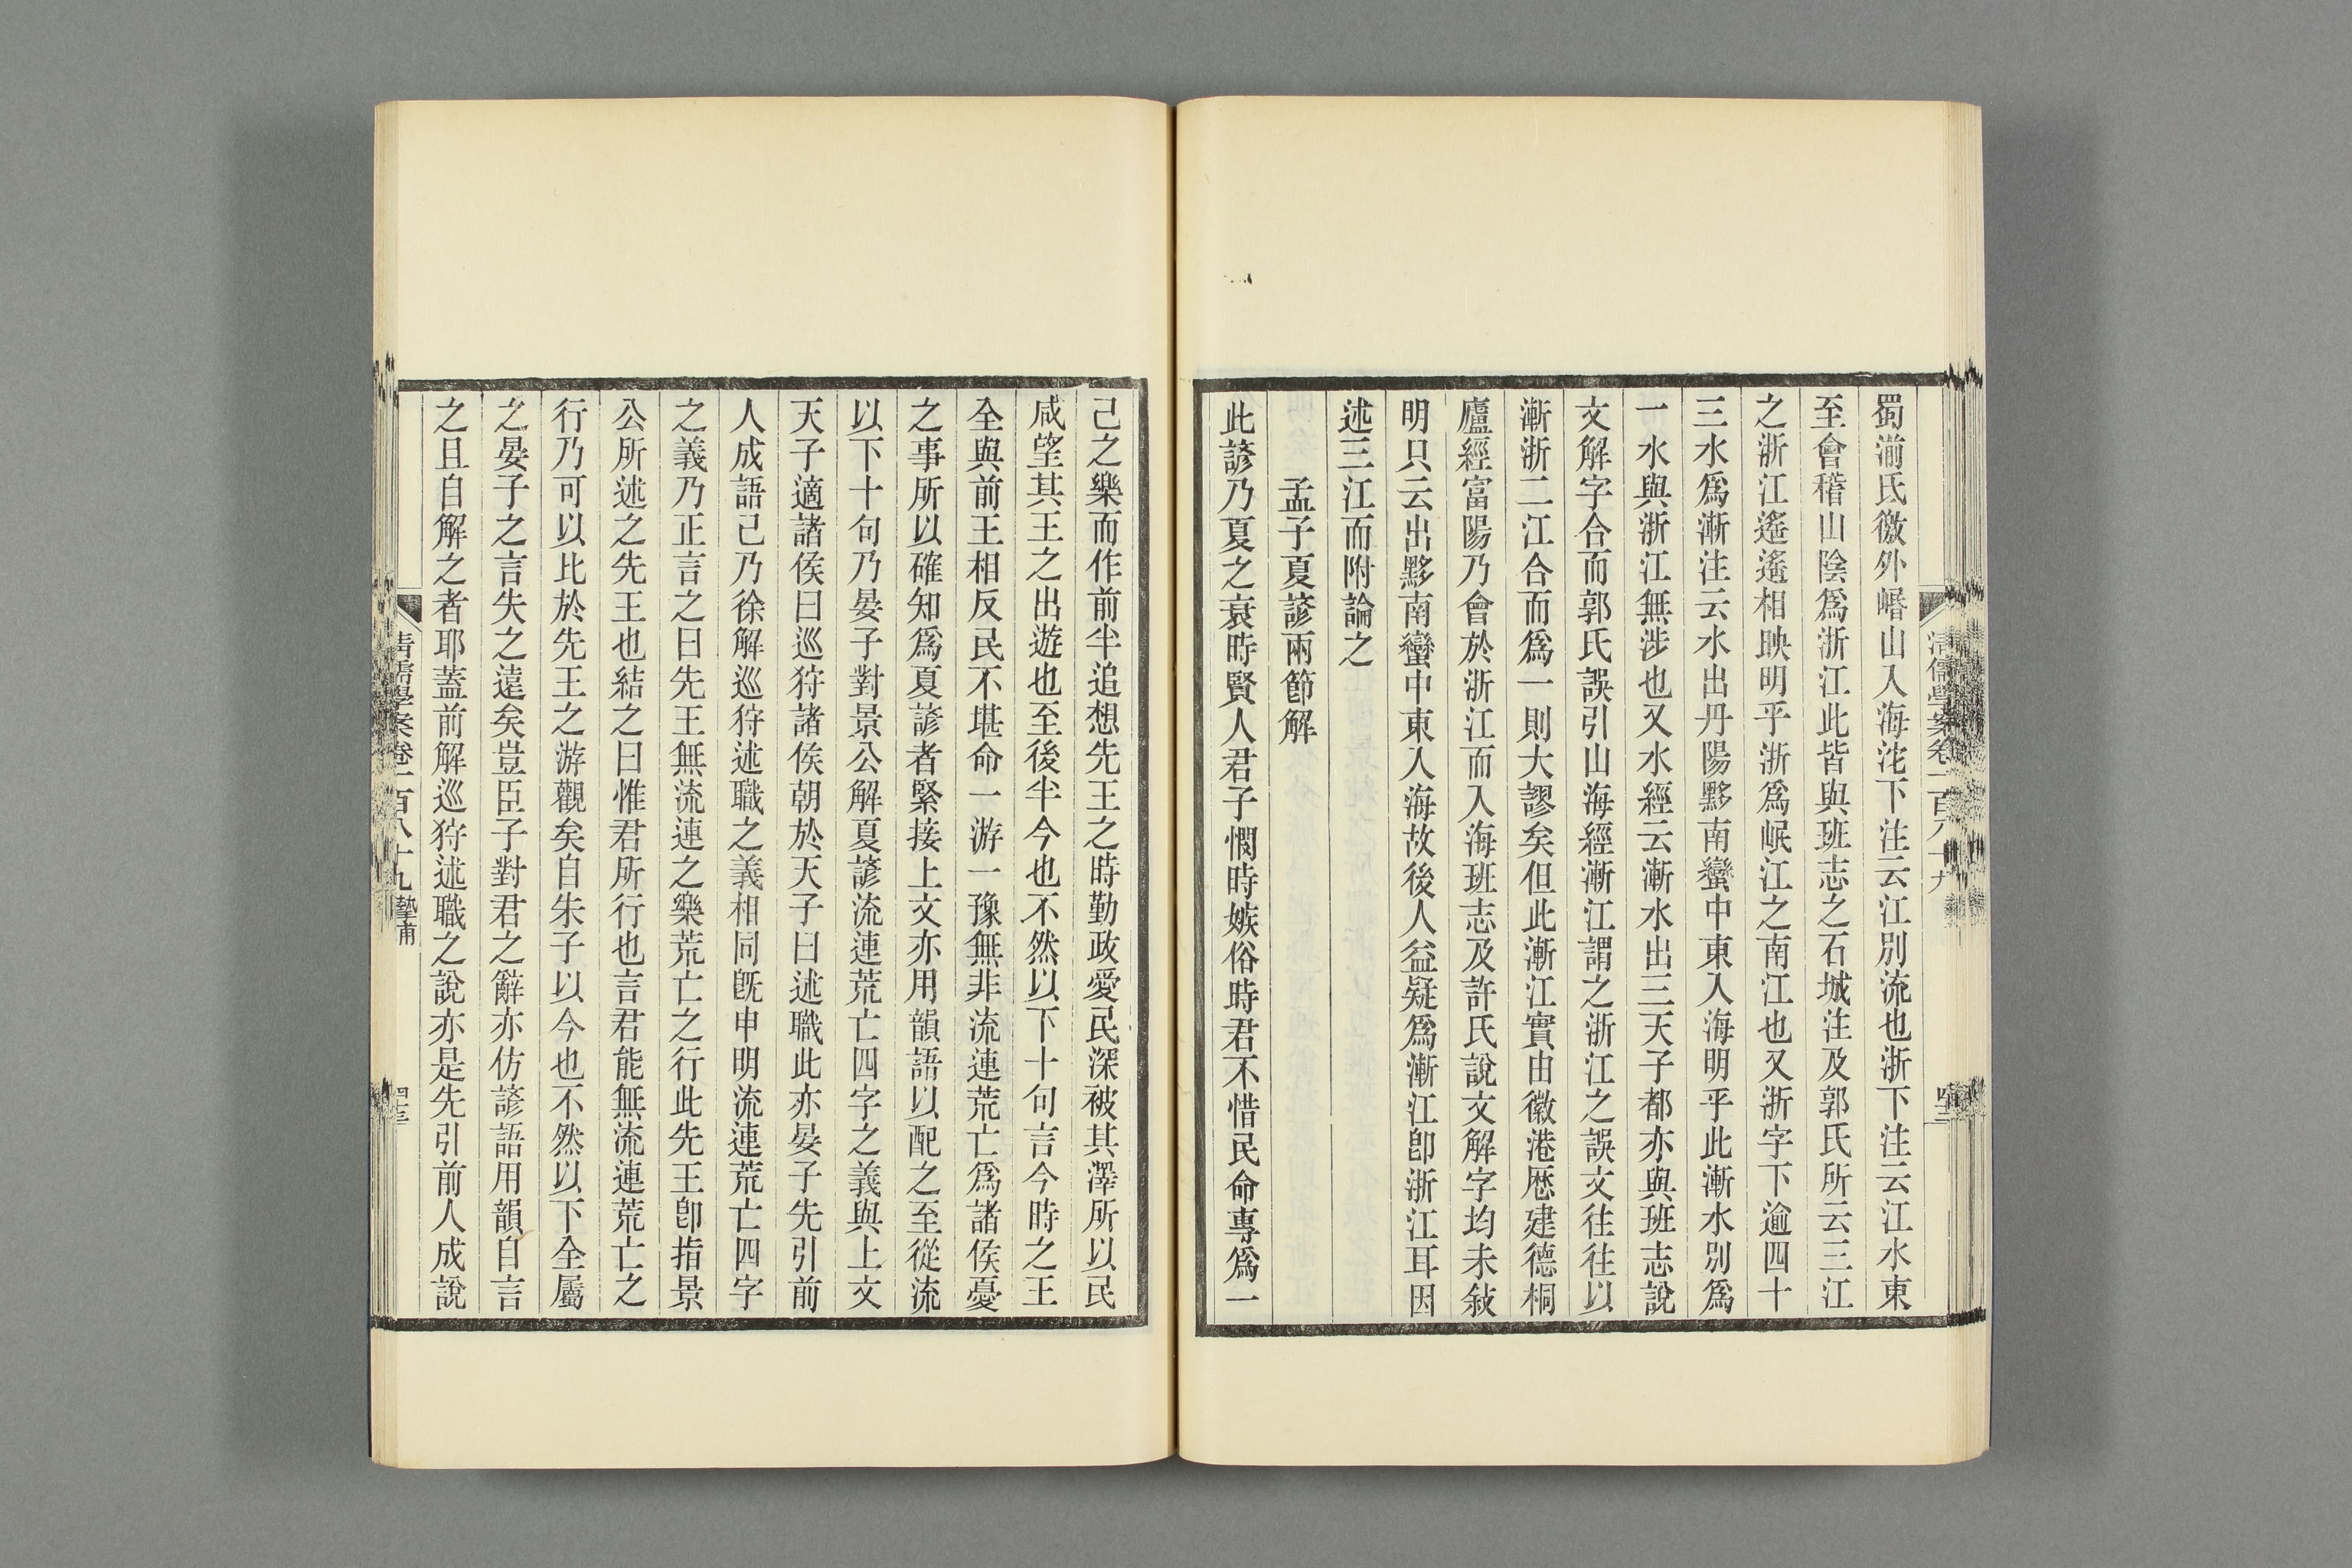 蜀湔氐徼外㟭山入海沱下注云江別流也浙下注云江水東
至會稽山陰爲浙江此皆與班志之石城注及郭氏所云三江
之浙江遙遙相映明乎浙爲岷江之南江也又浙字下逾四十
三水爲漸注云水出丹陽黟南蠻中東入海明乎此漸水別爲
一水與浙江無涉也又水經云漸水出三天子都亦與班志說
文解字合而郭氏誤引山海經漸江謂之浙江之誤文往往以
漸浙二江合而爲一則大謬矣但此漸江實由徽港歷建德桐
廬經富陽乃會於浙江而入海班志及許氏說文解字均未敍
明只云出黟南蠻中東入海故後人益疑爲漸江卽浙江耳因
述三江而附論之
孟子夏諺兩節解
此諺乃夏之衰時賢人君子憫時嫉俗時君不惜民命專爲一
清儒學案卷一百八十九
己之樂而作前半追想先王之時勤政愛民深被其澤所以民
咸望其王之出遊也至後半今也不然以下十句言今時之王
全與前王相反民不堪命一游一豫無非流連荒亡爲諸侯憂
之事所以確知爲夏諺者緊接上文亦用韻語以配之至從流
以下十句乃晏子對景公解夏諺流連荒亡四字之義與上文
天子適諸侯曰巡狩諸侯朝於天子曰述職此亦晏子先引前
人成語己乃徐解巡狩述職之義相同旣申明流連荒亡四字
之義乃正言之曰先王無流連之樂荒亡之行此先王卽指景
公所述之先王也結之曰惟君所行也言君能無流連荒亡之
行乃可以比於先王之游觀矣自朱子以今也不然以下全屬
之晏子之言失之遠矣豈臣子對君之辭亦仿諺語用韻自言
之且自解之者耶蓋前解巡狩述職之說亦是先引前人成說
清儒學案卷一百八十九 摯甫